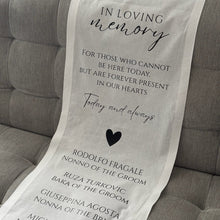 IN LOVING
memory
FOR THOSE WHO CANNOT
BE HERE TODAY,
BUT ARE FOREVER PRESENT
IN OUR HEARTS
Today and always
RODOLFO FRAGALE
NONNO OF THE GROOM
RUZA TURKOVIC
BAKA OF THE GROOM
GIUSEPPINA AGOSTA
NONNA OF THE